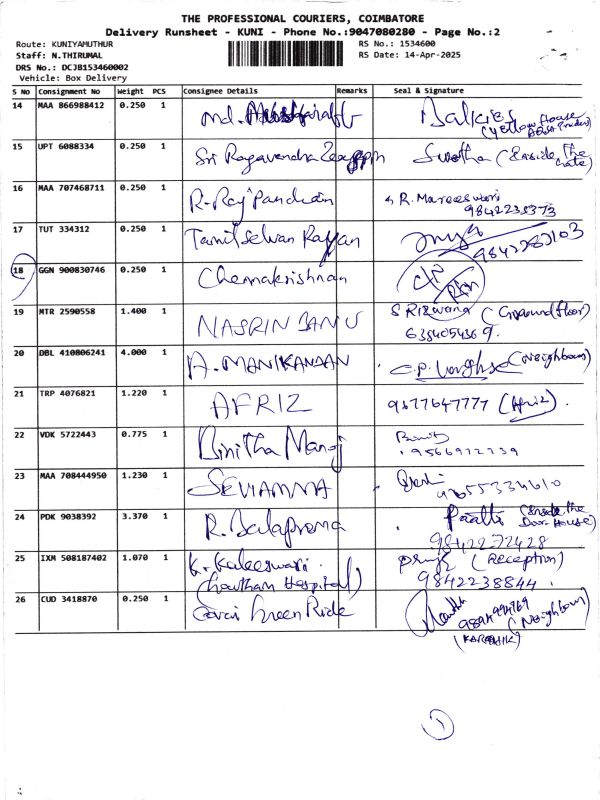 THE PROFESSIONAL COURIERS, COIMBATORE
Delivery Runsheet - KUNI - Phone No.:9047080280 - Page No.:2
Route: KUNIYAMUTHUR
RS No.: 1534600
Staff: N.THIRUMAL
RS Date: 14-Apr-2025
DRS No.: DCJB153460002
Vehicle: Box Delivery
S No Consignment No Weight PCS Consignee Details Remarks Seal & Signature
14 MAA 866988412 0.250 1 Md.
(Yellow House
15 UPT 6088334 0.250 1 Sri Ragavendra Swetha (Inside The
Gate)
16 MAA 707468711 0.250 1 R. Raj Pandian R. Mareeswari
9842235373
17 TUT 334312 0.250 1 Tamil Selvan Rajjan
9842282103
18 GGN 900830746 0.250 1 Chennakrishnan
19 MTR 2590558 1.400 1 NASRIN BANU S Rizwana (Ground floor)
6384054369.
20 DBL 410806241 4.000 1 A. MANIKANDAN C.P. (Neighbour)
21 TRP 4076821 1.220 1 AFRIZ 9877647777 (Afriz).
22 VDK 5722443 0.775 1 Binitha Manoj
9566912739
23 MAA 708444950 1.230 1 SEVIAMMA
9655334610
24 PDK 9038392 3.370 1 R. Balaprema Paatti (Inside the
Door House)
9842272428
25 IXM 508187402 1.070 1 K. Kaleeswari (Reception)
(Hospital) 9842238844.
26 CUD 3418870 0.250 1 Green Ride
(Neighbour)
(KARTHIK)
1